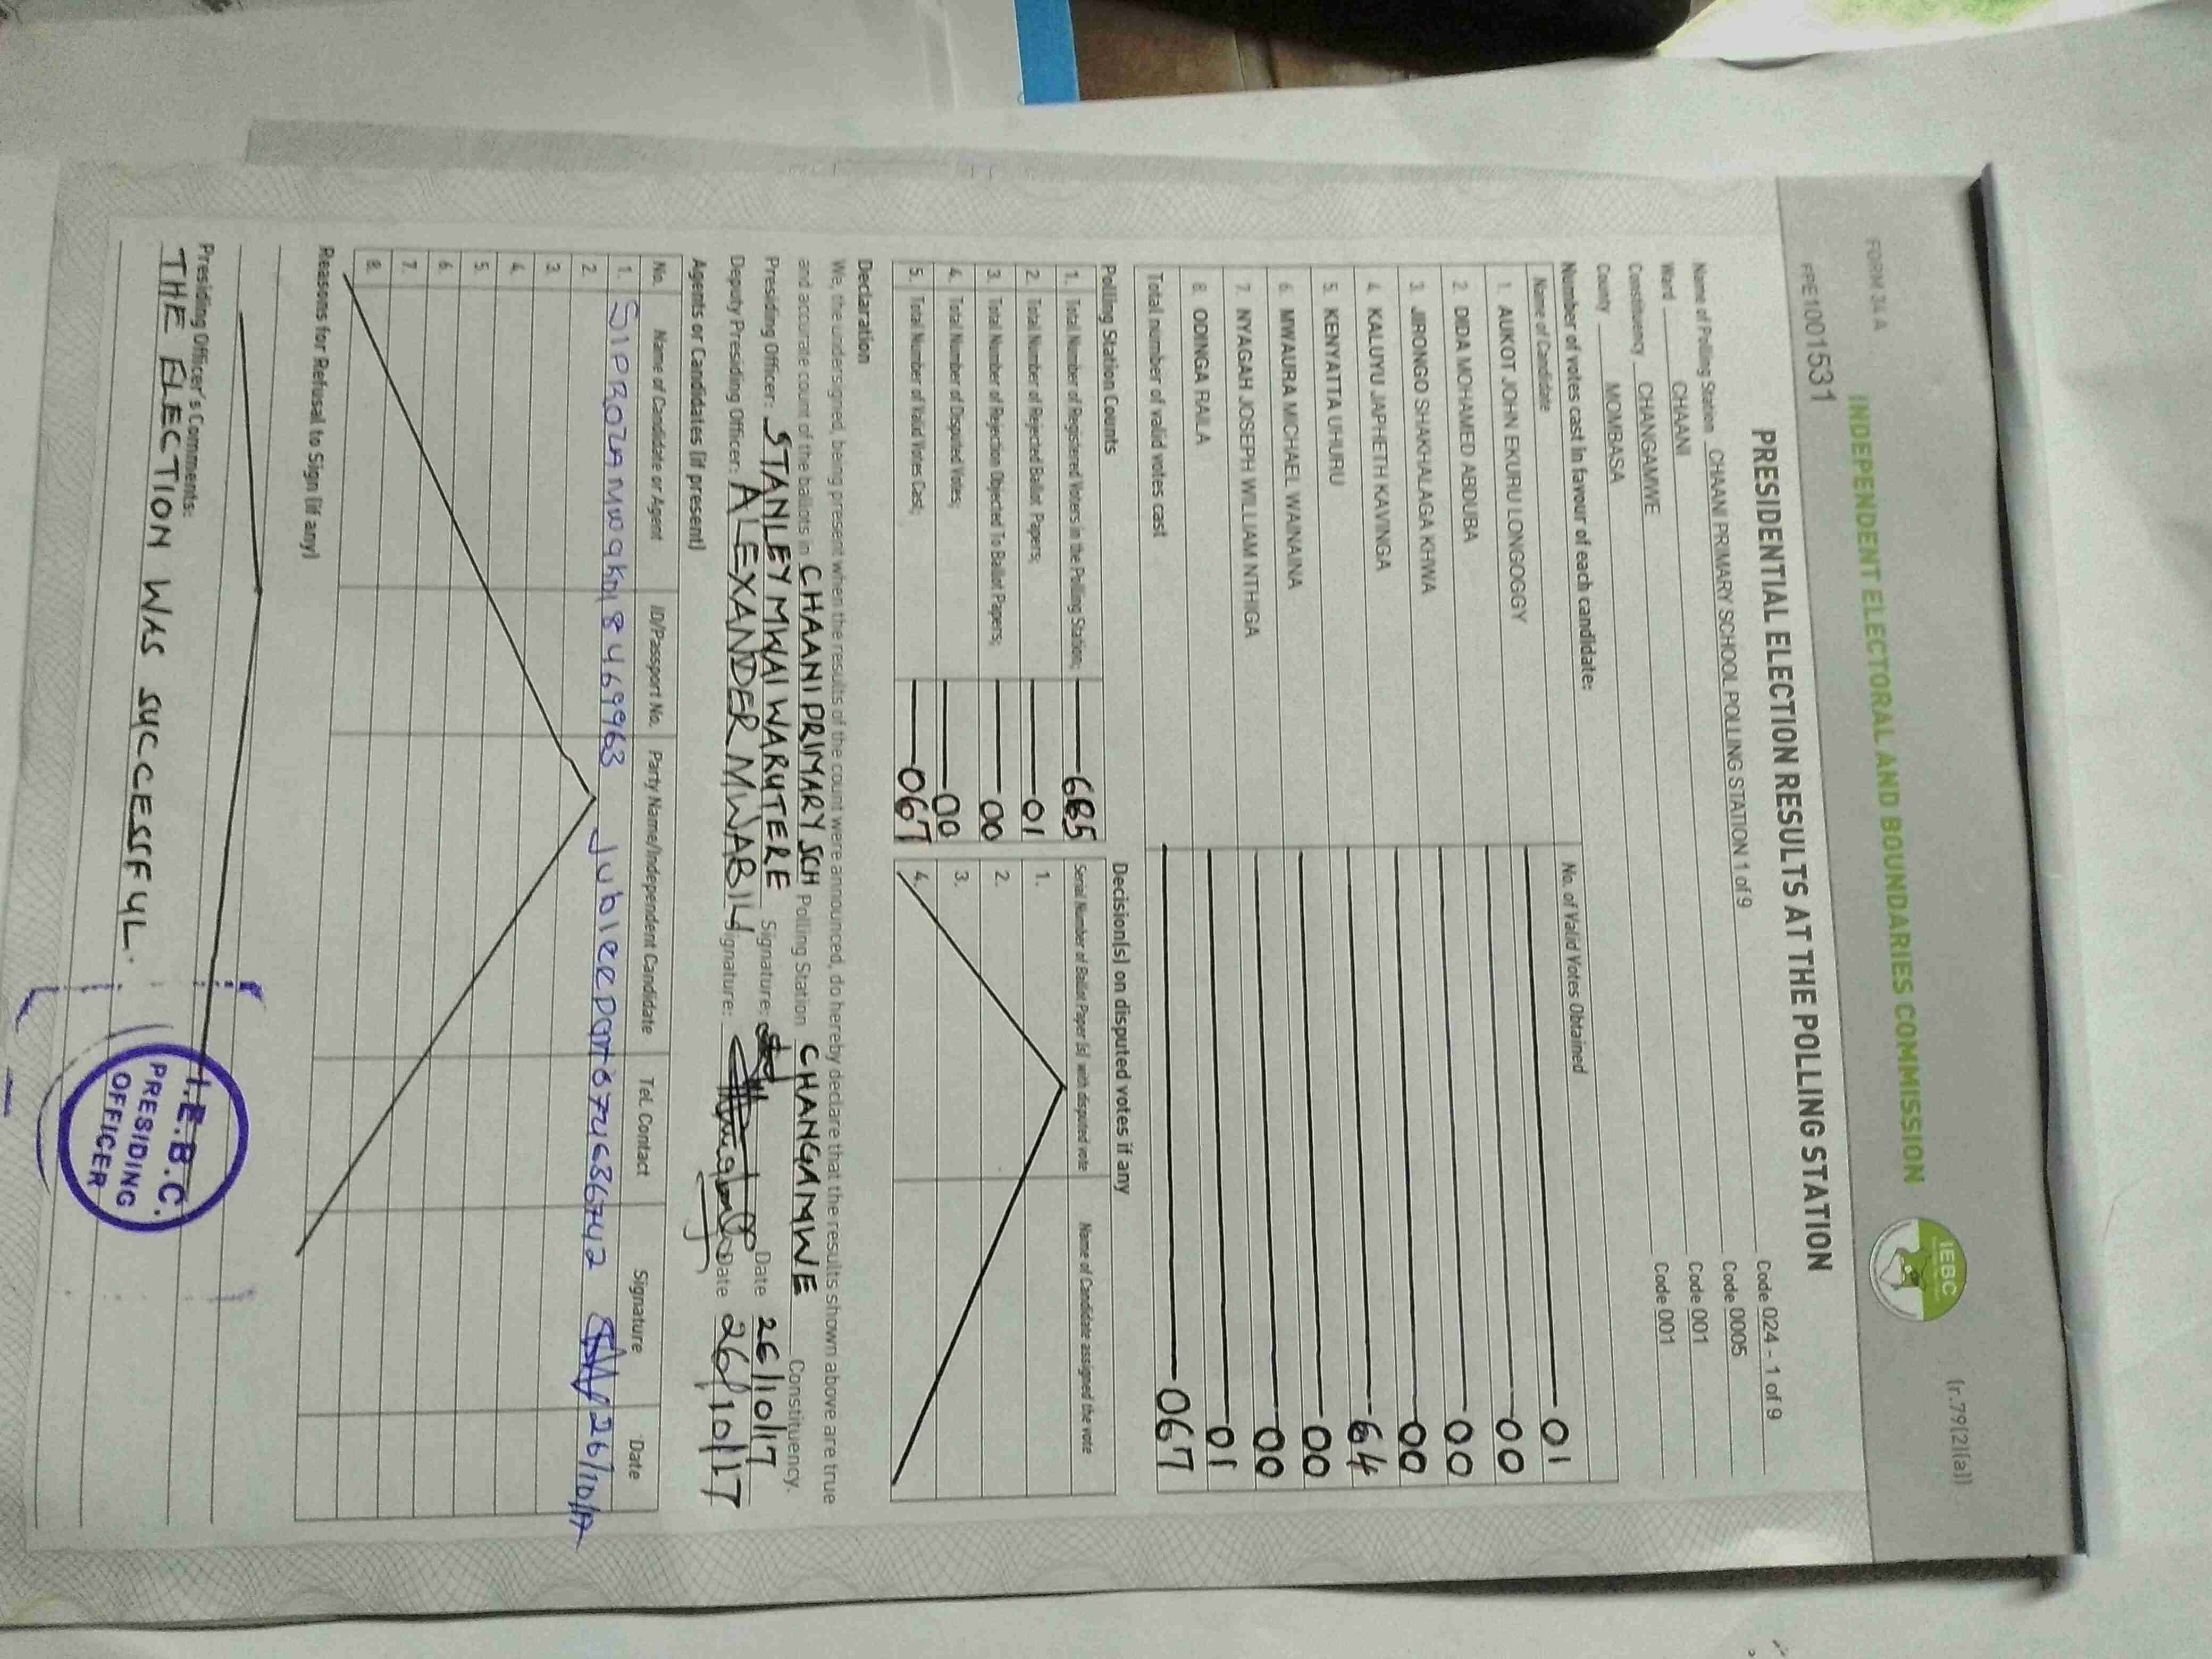 FORM 34 A
(r.79(2)(a))
INDEPENDENT ELECTORAL AND BOUNDARIES COMMISSION
IEBC
PRE1001531
PRESIDENTIAL ELECTION RESULTS AT THE POLLING STATION
Name of Polling Station CHAANI PRIMARY SCHOOL POLLING STATION 1 of 9 Code 024 - 1 of 9
Ward CHAANI Code 0005
Constituency CHANGAMWE Code 001
County MOMBASA Code 001
Number of votes cast in favour of each candidate:
Name of Candidate No. of Valid Votes Obtained
1. AUKOT JOHN EKURU LONGOGGY 01
2. DIDA MOHAMED ABDUBA 00
3. JIRONGO SHAKHALAGA KHWA 00
4. KALUYU JAPHETH KAVINGA 00
5. KENYATTA UHURU 64
6. MWAURA MICHAEL WAINAINA 00
7. NYAGAH JOSEPH WILLIAM NTHIGA 00
8. ODINGA RAILA 01
Total number of valid votes cast 067
Polling Station Counts
1. Total Number of Registered Voters in the Polling Station; 685
2. Total Number of Rejected Ballot Papers; 01
3. Total Number of Rejection Objected To Ballot Papers; 00
4. Total Number of Disputed Votes; 00
5. Total Number of Valid Votes Cast; 067
Decision(s) on disputed votes if any
Serial Number of Ballot Paper (s) with disputed vote Name of Candidate assigned the vote
1.
2.
3.
4.
Declaration
We, the undersigned, being present when the results of the count were announced, do hereby declare that the results shown above are true
and accurate count of the ballots in CHAANI PRIMARY SCH Polling Station CHANGAMWE Constituency.
Presiding Officer: STANLEY MWAI WARUTERE Signature: Date 26/10/17
Deputy Presiding Officer: ALEXANDER MWABILI Signature: Date 26/10/17
Agents or Candidates (if present)
No. Name of Candidate or Agent ID/Passport No. Party Name/Independent Candidate Tel. Contact Signature Date
1. 26/10/17
2.
3.
4.
5.
6.
7.
8.
Reasons for Refusal to Sign (if any)
Presiding Officer's Comments:
THE ELECTION WAS SUCCESSFUL.
I.E.B.C.
PRESIDING
OFFICER